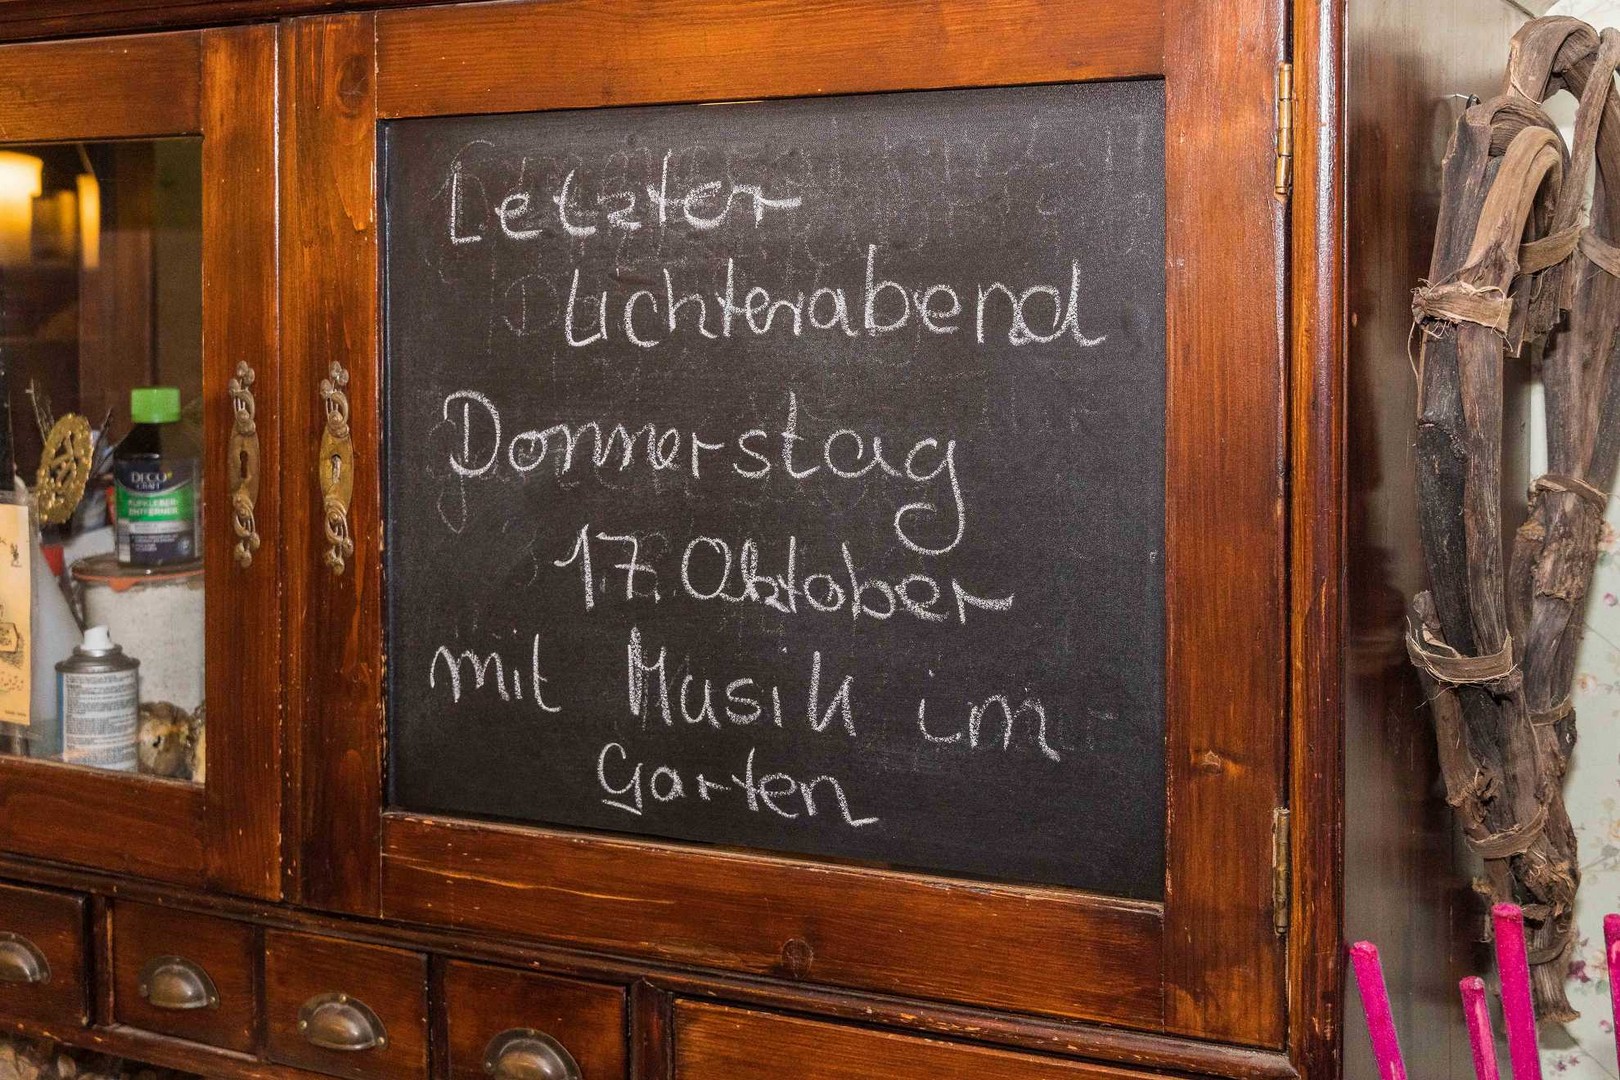 Letzter
Lichterabend
Donnerstag
17. Oktober
mit Musik im
Garten
DECO
CRAFT
ENTFERNER